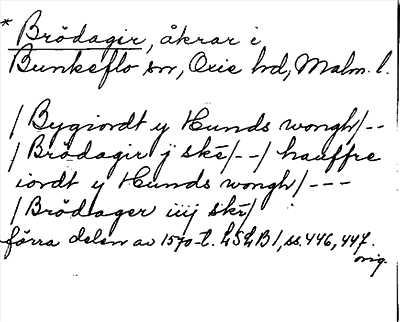 * Brödagir, åkrar i
Bunkeflo sn, Oxie hd, Malm. l.
/ Bygiordt y Hunds wongh/--
/ Brödagir j skē/--/ hauffre
iordt y Hunds wongh/---
/ Brödager iiij skē/
förra delen av 1570-t. LSLB1, ss. 446, 447.
orig.